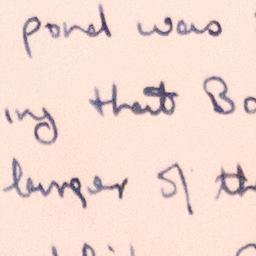 pond was
ing that Bo
larger of th